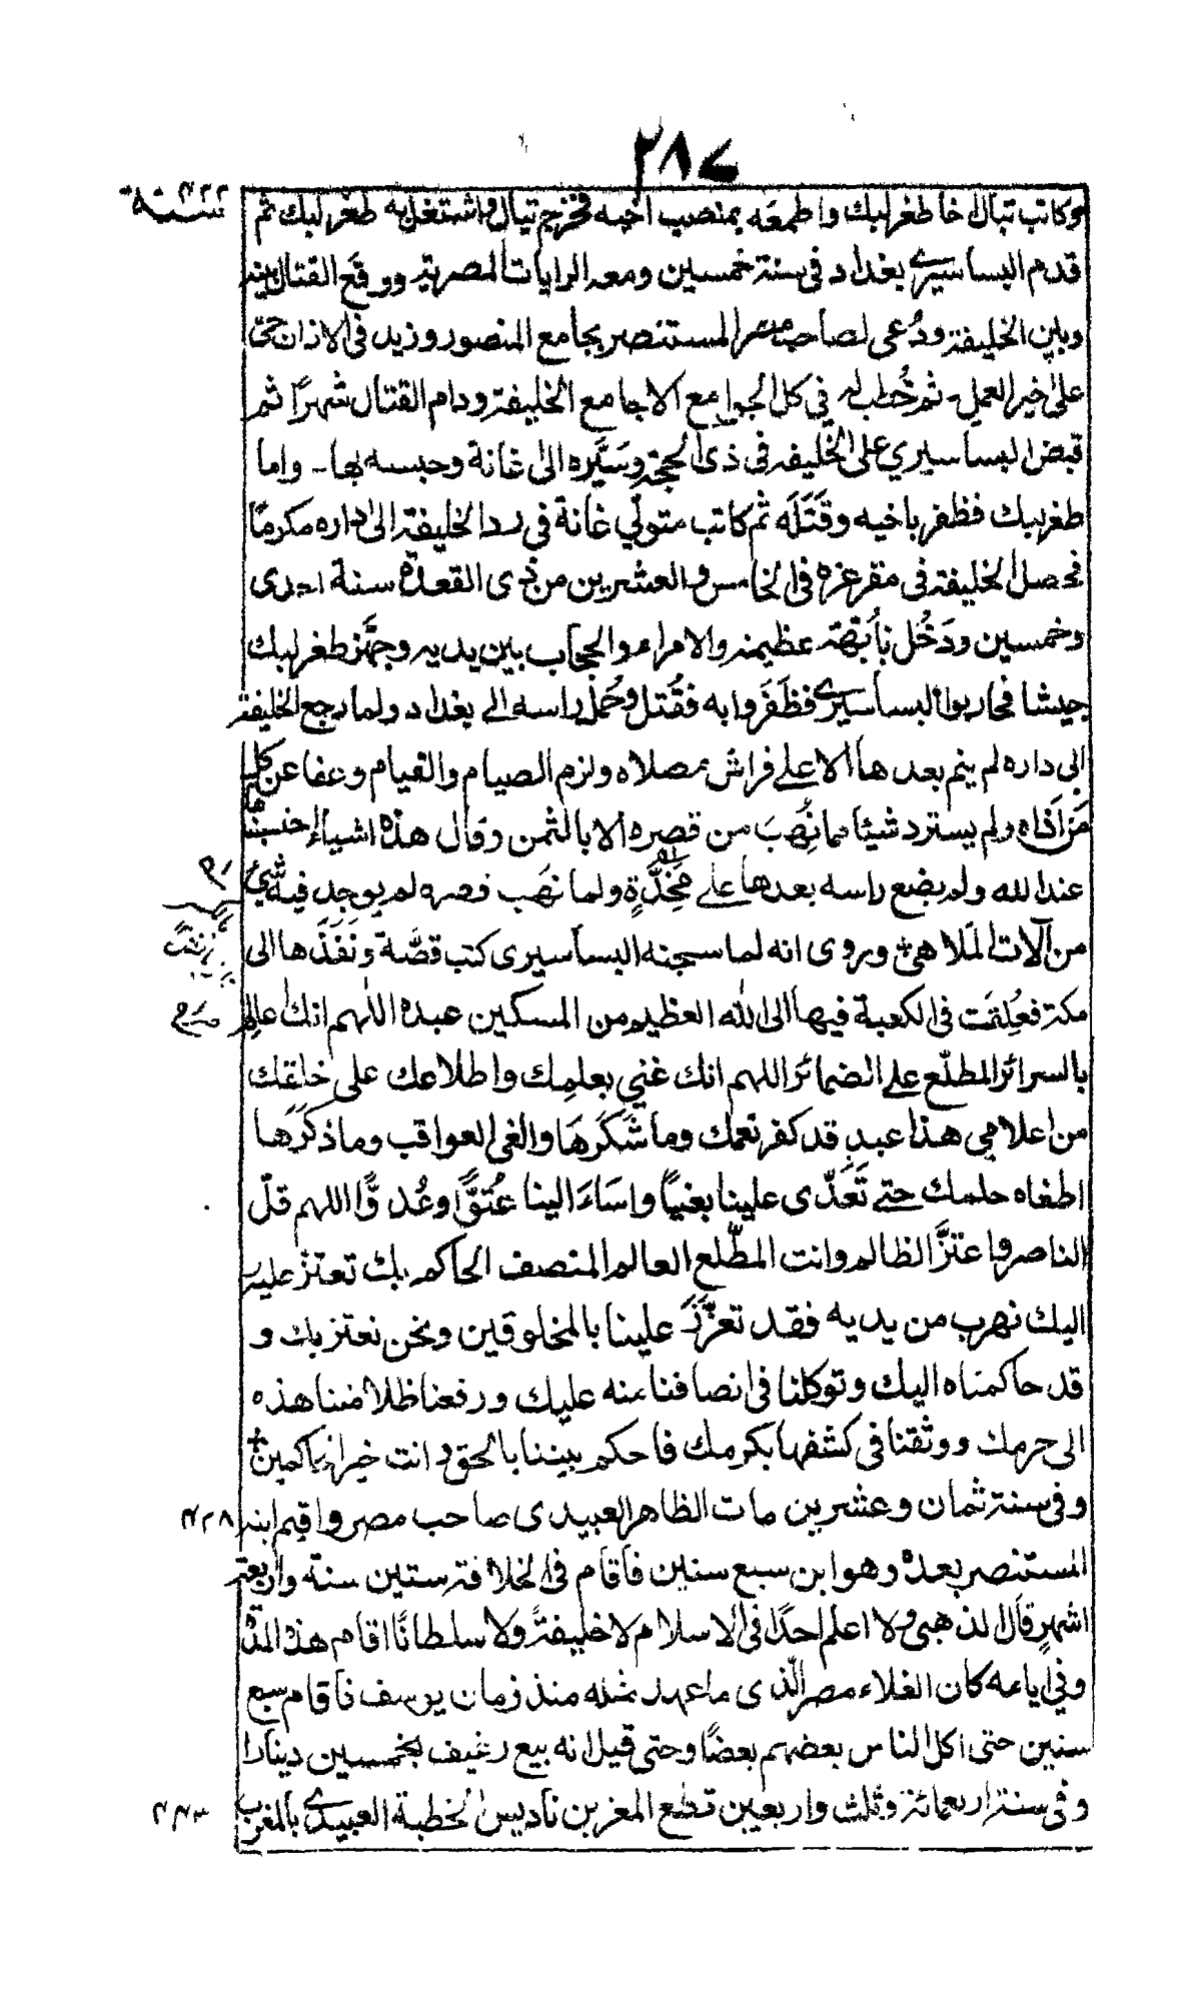 ٢٨٧
سنة ٤٢٢
وكاتب تبال اخا طغرلبك واطمعه بمنصب اخيه فخرج تيال واشتغل به طغرلبك ثم
قدم البساسيرى بغداد فى سنة خمسين ومعه الرايات المصرية ووقع القتال بينه
وبين الخليفة ودُعى لصاحب مصر المستنصر بجامع المنصور وزيد فى الاذان حى
على خير العمل۔ ثم خُطب له في كل الجوامع الا جامع الخليفة ودام القتال شهرًا ثم
قبض البساسيري على الخليفة فى ذى الحجة وسَيَّره الى غانة وحبسه بها۔ واما
طغرلبك فظفر باخيه وقَتَلَه ثم كاتب متولّي غانة فى رد الخليفة الى داره مكرمًا
فحصل الخليفة فى مقر عزه فى الخامس والعشرين من ذى القعدة سنة احدى
وخمسين ودَخُل بأبّهة عظيمة والامراء والحجاب بين يديه وجهّز طغرلبك
جيشا فحاربوا البساسيرى فظَفَروا به فقُتل وحُمل راسه الى بغداد ولما رجع الخليفة
الى داره لم ينم بعدها الا على فراش مصلاه ولزم الصيام والقيام وعفا عن كل
من اذاه ولم يسترد شيئا مما نُهِبَ من قصره الا بالثمن وقال هذه اشياء احتسبناها
عند الله ولم يضع راسه بعدها على مِخَدَّةٍ ولما نهب قصره لم يوجد فيه شئ
من آلات الملاهى وروى انه لما سجنه البساسيرى كتب قصّة ونَفَّذَها الى
مكة فعُلِّقت فى الكعبة فيها الى الله العظيم من المسكين عبده اللهم انك عالم
بالسرائر المطلّع على الضمائر اللهم انك غني بعلمك واطلاعك على خلقك
من اعلامي هذا عبد قد كفر نعمك وما شَكَرَهَا والغى العواقب وما ذكرها
اطغاه حلمك حتى تَعَدّى علينا بغيًا واسَاءَ الينا عُتوًّا وعُدوًّا اللهم قلّ
الناصر واعتزَّ الظالم وانت المطّلع العالم المنصف الحاكم بك تعتز عليه
اليك نهرب من يديه فقد تعزّز علينا بالمخلوقين ونحن نعتز بك و
قد حاكمناه اليك وتوكلنا فى انصافنا منه عليك ورفعنا ظلامتنا هذه
الى حرمك ووثقنا فى كشفها بكرمك فاحكم بيننا بالحق وانت خير الحاكمين
وفى سنة ثمان وعشرين مات الظاهر العبيدى صاحب مصر واقيم ابنه ٤٢٨
المستنصر بعده وهو ابن سبع سنين فاقام فى الخلافة ستين سنة واربعة
اشهر قال الذهبى ولا اعلم احدًا فى الاسلام لا خليفةً ولا سلطانًا اقام هذه المدة
وفى ايامه كان الغلاء مصر الّذى ما عهد مثله منذ زمان يوسف فاقام سبع
سنين حتى اكل الناس بعضهم بعضًا وحتى قيل انه بيع رغيف بخمسين دينارا
وفى سنة اربعمائة وثلث واربعين قطع المعز بن ناديس الخطبة العبيدى بالمغرب ٤٤٣